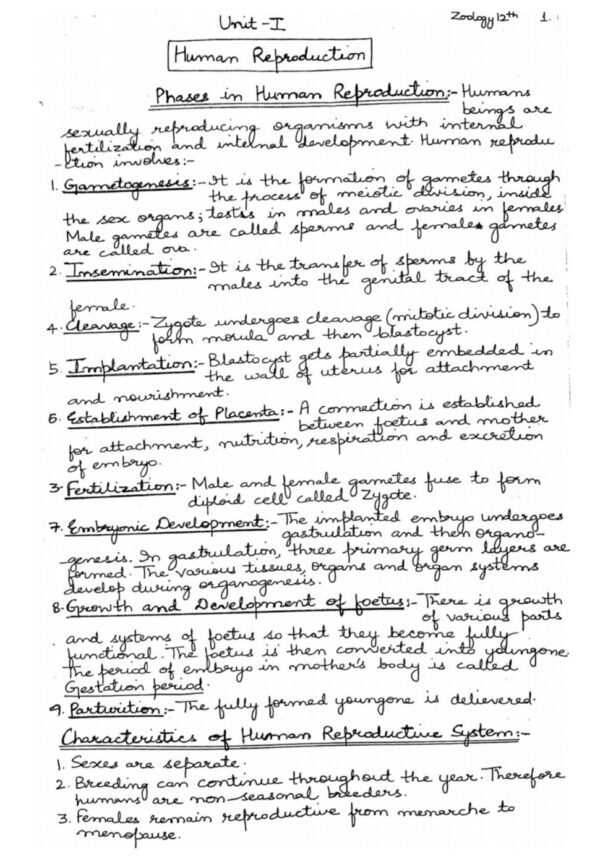 Zoology 12th 1.
Unit-I
Human Reproduction
Phases in Human Reproduction:- Humans
beings are
sexually reproducing organisms with internal
fertilization and internal development. Human reprodu
-ction involves:-
1. Gametogenesis:- It is the formation of gametes through
the process of meiotic division, inside
the sex organs; testis in males and ovaries in females
Male gametes are called sperms and females gametes
are called ova.
2. Insemination:- It is the transfer of sperms by the
males into the genital tract of the
female.
4. Cleavage:- Zygote undergoes cleavage (mitotic division) to
form morula and then blastocyst.
5. Implantation:- Blastocyst gets partially embedded in
the wall of uterus for attachment
and nourishment.
6. Establishment of Placenta:- A connection is established
between foetus and mother
for attachment, nutrition, respiration and excretion
of embryo.
3. Fertilization:- Male and female gametes fuse to form
diploid cell called Zygote.
7. Embryonic Development:- The implanted embryo undergoes
gastrulation and then organo-
-genesis. In gastrulation, three primary germ layers are
formed. The various tissues, organs and organ systems
develop during organogenesis.
8. Growth and Development of foetus:- There is growth
of various parts
and systems of foetus so that they become fully
functional. The foetus is then converted into youngone.
The period of embryo in mother's body is called
Gestation period.
9. Parturition:- The fully formed youngone is delievered.
Characteristics of Human Reproductive System:-
1. Sexes are separate.
2. Breeding can continue throughout the year. Therefore
humans are non-seasonal breeders.
3. Females remain reproductive from menarche to
menopause.